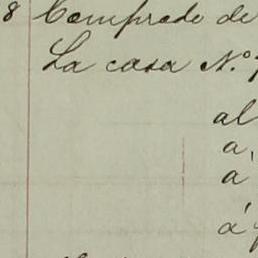 8 Comprado de
La casa N.º
al
a
a
á